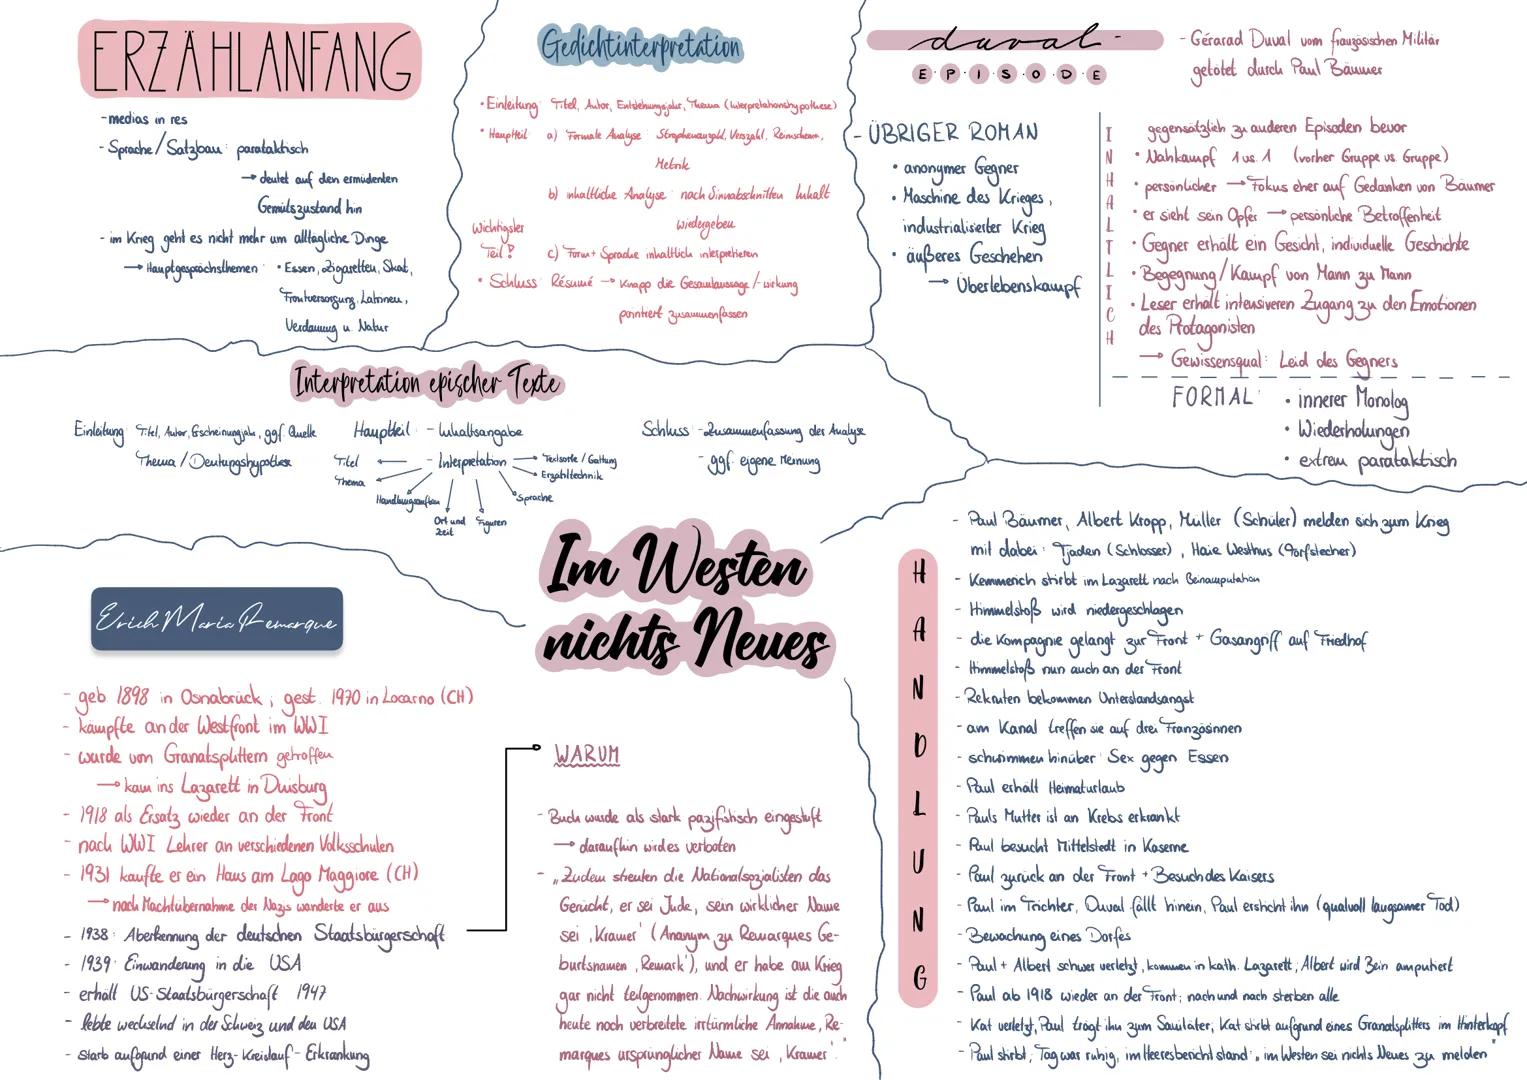 ERZÄHLANFANG
- medias in res
- Sprache/Satzbau: parataktisch
→ deutet auf den ermüdenten
Gemütszustand hin
- im Krieg geht es nicht mehr um alltägliche Dinge
→ Hauptgesprächsthemen • Essen, Zigaretten, Skat,
Frontversorgung, Latrinen,
Verdauung u. Natur
Gedichtinterpretation
• Einleitung: Titel, Autor, Entstehungsjahr, Thema (Interpretationshypothese)
• Hauptteil: a) Formale Analyse: Strophenanzahl, Verszahl, Reimschema,
Metrik
b) inhaltliche Analyse: nach Sinnabschnitten Inhalt
wiedergeben
Wichtigster
Teil!
c) Form + Sprache inhaltlich interpretieren
• Schluss: Résumé → knapp die Gesamtaussage/-wirkung
pointiert zusammenfassen
duval-
E·P·I·S·O·D·E
- Gérarad Duval vom französischen Militär
getötet durch Paul Bäumer
- ÜBRIGER ROMAN
• anonymer Gegner
• Maschine des Krieges,
industrialisierter Krieg
• äußeres Geschehen
→ Überlebenskampf
INHALTLICH
gegensätzlich zu anderen Episoden bevor
• Nahkampf 1 vs. 1 (vorher Gruppe vs. Gruppe)
• persönlicher → Fokus eher auf Gedanken von Bäumer
• er sieht sein Opfer → persönliche Betroffenheit
• Gegner erhält ein Gesicht, individuelle Geschichte
• Begegnung/Kampf von Mann zu Mann
• Leser erhält intensiveren Zugang zu den Emotionen
des Protagonisten
→ Gewissensqual: Leid des Gegners
FORMAL: • innerer Monolog
• Wiederholungen
• extrem parataktisch
Interpretation epischer Texte
Einleitung: Titel, Autor, Erscheinungsjahr, ggf. Quelle
Thema / Deutungshypothese
Hauptteil: - Inhaltsangabe
- Interpretation
Titel
Thema
Handlungsaufbau
Ort und
Zeit
Figuren
Sprache
Erzähltechnik
Textsorte / Gattung
Schluss: - Zusammenfassung der Analyse
- ggf. eigene Meinung
Im Westen
nichts Neues
Erich Maria Remarque
- geb. 1898 in Osnabrück; gest. 1970 in Locarno (CH)
- kämpfte an der Westfront im WWI
- wurde von Granatsplittern getroffen
→ kam ins Lazarett in Duisburg
- 1918 als Ersatz wieder an der Front
- nach WWI Lehrer an verschiedenen Volksschulen
- 1931 kaufte er ein Haus am Lago Maggiore (CH)
→ nach Machtübernahme der Nazis wanderte er aus
- 1938: Aberkennung der deutschen Staatsbürgerschaft
- 1939: Einwanderung in die USA
- erhält US-Staatsbürgerschaft 1947
- lebte wechselnd in der Schweiz und den USA
- starb aufgrund einer Herz-Kreislauf-Erkrankung
WARUM
- Buch wurde als stark pazifistisch eingestuft
→ daraufhin wird es verboten
- „Zudem streuten die Nationalsozialisten das
Gerücht, er sei Jude, sein wirklicher Name
sei ‚Kramer' (Ananym zu Remarques Ge-
burtsnamen ‚Remark'), und er habe am Krieg
gar nicht teilgenommen. Nachwirkung ist die auch
heute noch verbreitete irrtümliche Annahme, Re-
marques ursprünglicher Name sei ‚Kramer'."
HANDLUNG
- Paul Bäumer, Albert Kropp, Müller (Schüler) melden sich zum Krieg
mit dabei: Tjaden (Schlosser), Haie Westhus (Torfstecher)
- Kemmerich stirbt im Lazarett nach Beinamputation
- Himmelstoß wird niedergeschlagen
- die Kompagnie gelangt zur Front + Gasangriff auf Friedhof
- Himmelstoß nun auch an der Front
- Rekruten bekommen Unterstandsangst
- am Kanal treffen sie auf drei Französinnen
- schwimmen hinüber: Sex gegen Essen
- Paul erhält Heimaturlaub
- Pauls Mutter ist an Krebs erkrankt
- Paul besucht Mittelstedt in Kaserne
- Paul zurück an der Front + Besuch des Kaisers
- Paul im Trichter, Duval fällt hinein, Paul ersticht ihn (qualvoll langsamer Tod)
- Bewachung eines Dorfes
- Paul + Albert schwer verletzt, kommen in kath. Lazarett; Albert wird Bein amputiert
- Paul ab 1918 wieder an der Front; nach und nach sterben alle
- Kat verletzt, Paul trägt ihn zum Sanitäter, Kat stirbt aufgrund eines Granatsplitters im Hinterkopf
- Paul stirbt; Tag war ruhig, im Heeresbericht stand: „im Westen sei nichts Neues zu melden"